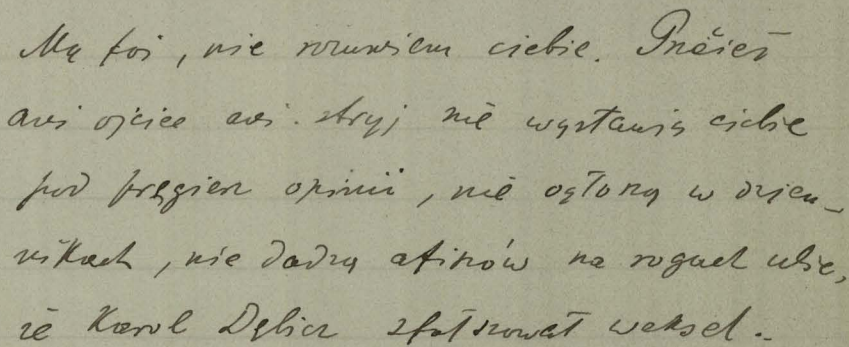 Ma foi, nie rozumiem ciebie. Przecież
ani ojciec ani stryj nie wystawią ciebie
pod pręgierz opinii, nie ogłoszą w dzien-
nikach, nie dadzą afiszów na rogach ulic,
że Karol Dębicz sfałszował weksel.